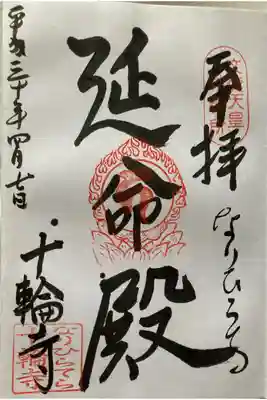 奉拝
なりひらでら
延命殿
十輪寺
平成三十年四月七日